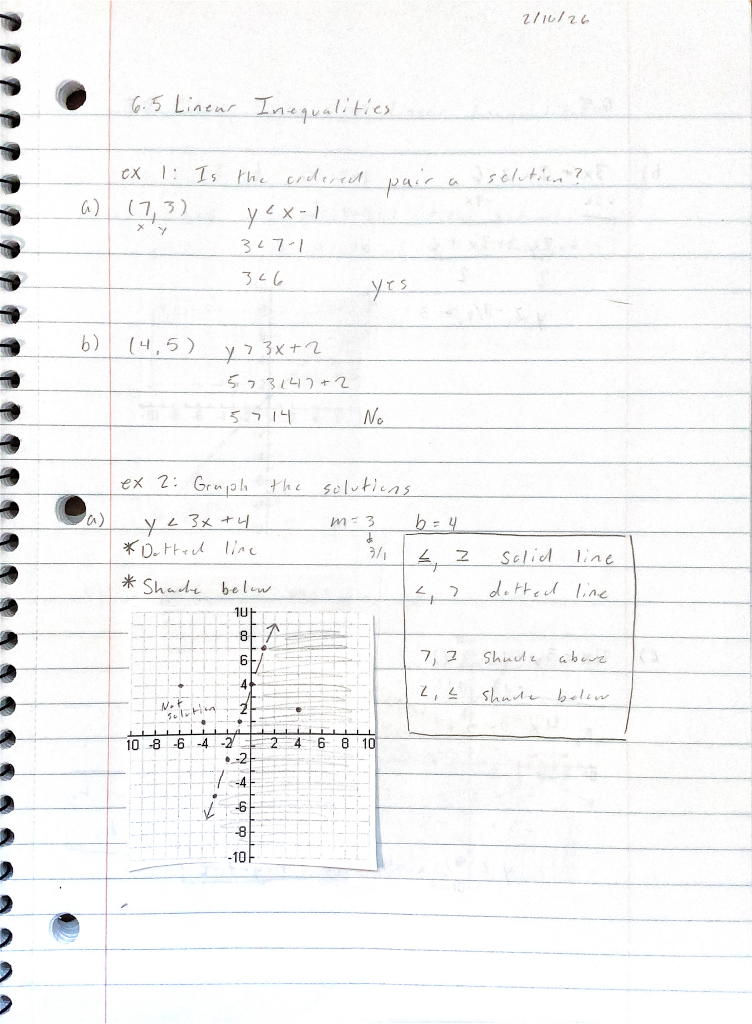 2/16/26
6.5 Linear Inequalities
ex 1: Is the ordered pair a solution?
a) (7, 3) y < x - 1
x y 3 < 7 - 1
3 < 6 yes
b) (4, 5) y > 3x + 2
5 > 3(4) + 2
5 > 14 No
ex 2: Graph the solutions
a) y < 3x + 4 m = 3 b = 4
* Dotted line 3/1
* Shade below
≤, ≥ solid line
<, > dotted line
>, ≥ shade above
<, ≤ shade below
10
8
6
4
Not
solution 2
10 -8 -6 -4 -2 2 4 6 8 10
-2
-4
-6
-8
-10